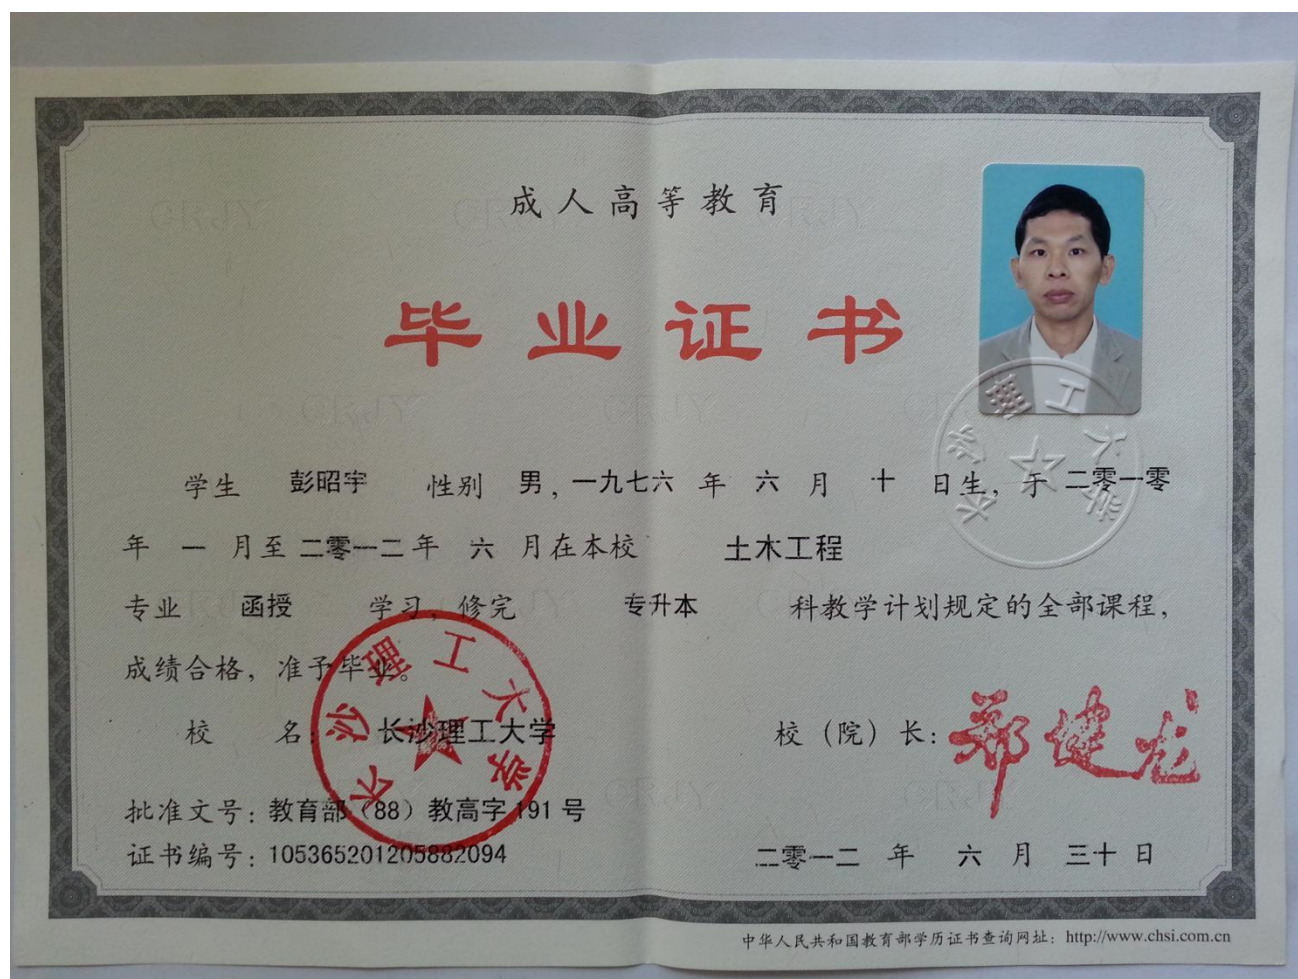 成人高等教育
毕业证书
学生 彭昭宇 性别 男，一九七六 年 六 月 十 日生，于 二零一零
年 一 月至 二零一二 年 六 月在本校 土木工程
专业 函授 学习，修完 专升本 科教学计划规定的全部课程，
成绩合格，准予毕业。
校 名：长沙理工大学
校（院）长：郑健龙
长沙理工大学
长沙理工大学
批准文号：教育部（88）教高字 191 号
证书编号：105365201205882094
二零一二 年 六 月 三十 日
中华人民共和国教育部学历证书查询网址：http://www.chsi.com.cn